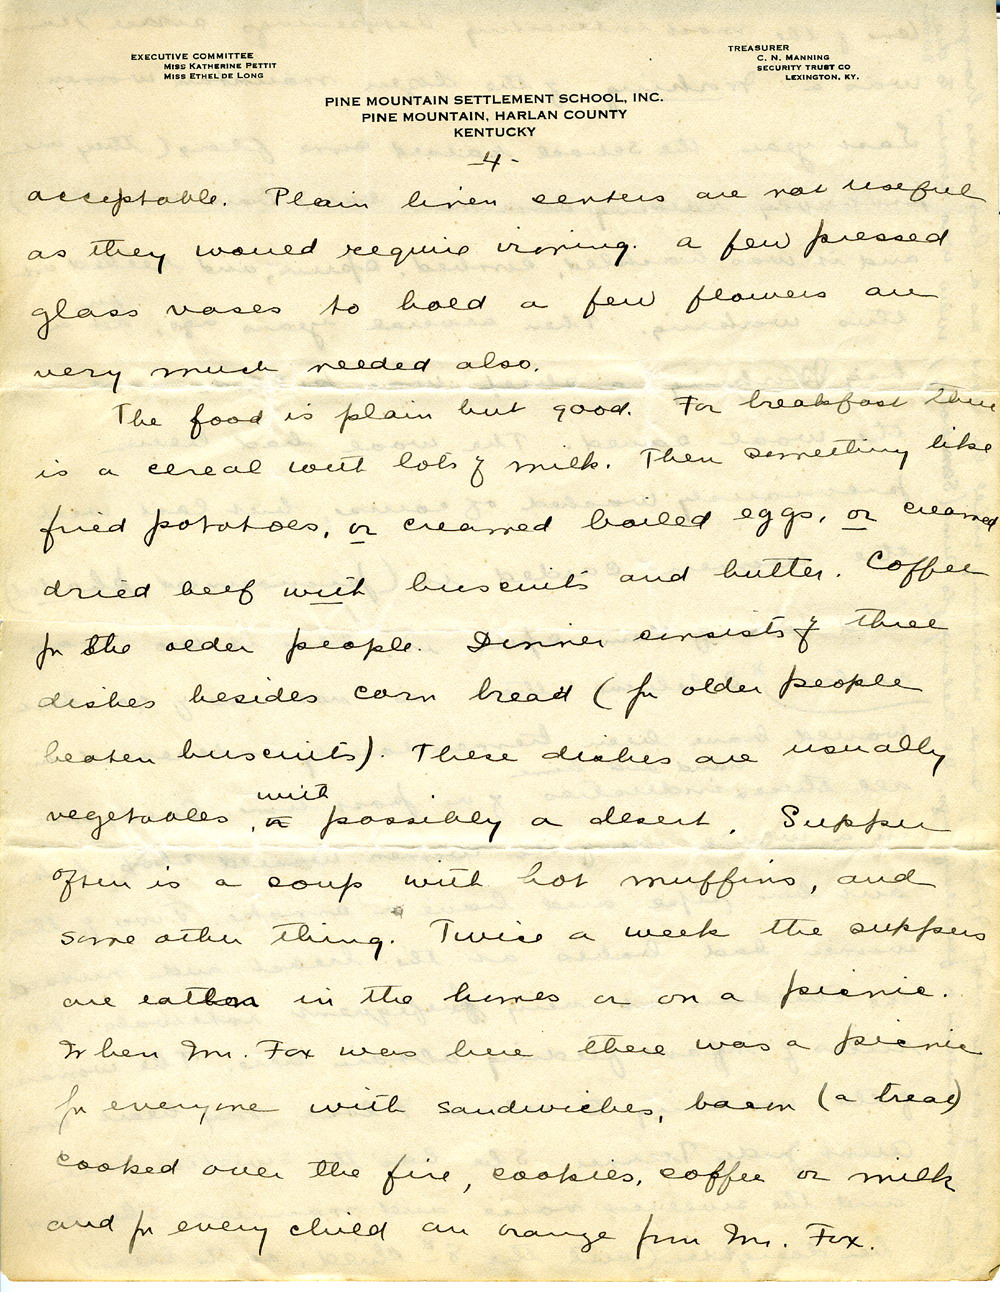 EXECUTIVE COMMITTEE
MISS KATHERINE PETTIT
MISS ETHEL DE LONG
TREASURER
C. N. MANNING
SECURITY TRUST CO
LEXINGTON, KY.
PINE MOUNTAIN SETTLEMENT SCHOOL, INC.
PINE MOUNTAIN, HARLAN COUNTY
KENTUCKY
-4-
acceptable. Plain linen centers are not useful
as they would require ironing. A few pressed
glass vases to hold a few flowers are
very much needed also.
The food is plain but good. For breakfast there
is a cereal with lots of milk. Then something like
fried potatoes, or creamed boiled eggs, or creamed
dried beef with buscuits and butter. Coffee
for the older people. Dinner consists of three
dishes besides corn bread (for older people
beaten buscuits). These dishes are usually
vegetables, with
or possibly a desert. Supper
often is a soup with hot muffins, and
some other thing. Twice a week the suppers
are eaten in the homes or on a picnic.
When Mr. Fox was here there was a picnic
for everyone with sandwiches, bacon (a treat)
cooked over the fire, cookies, coffee or milk
and for every child an orange from Mr. Fox.